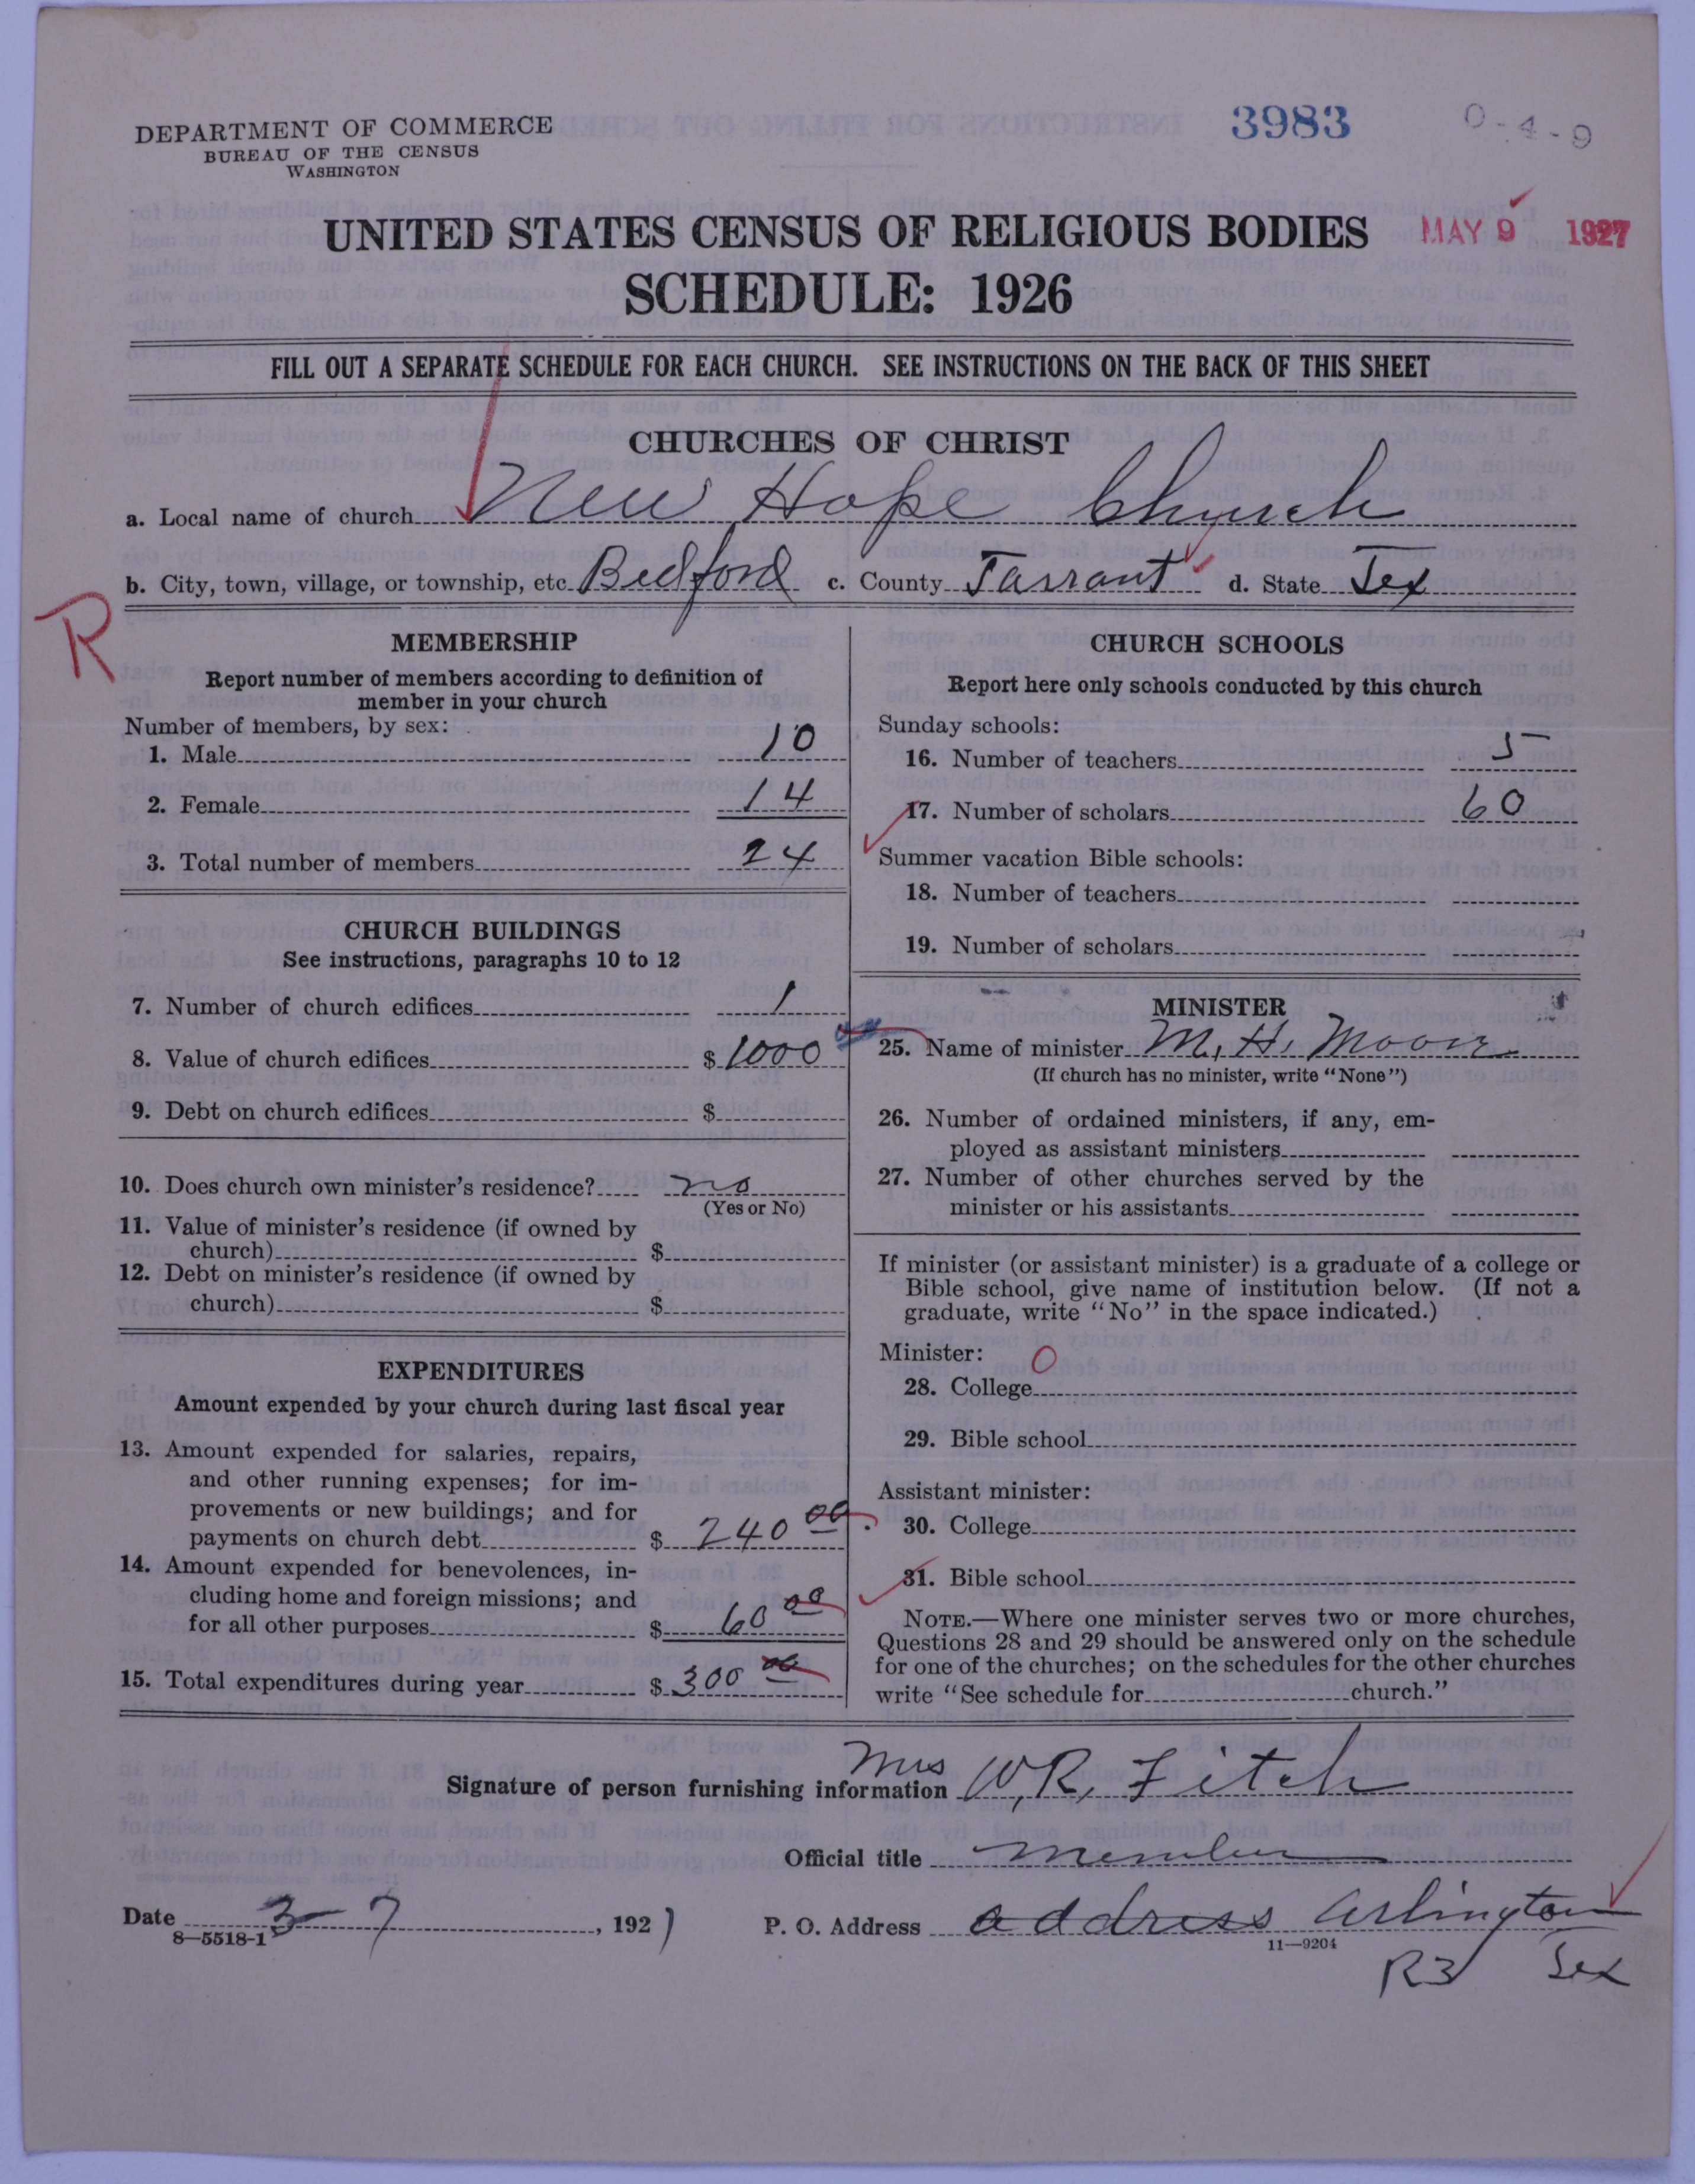 DEPARTMENT OF COMMERCE
BUREAU OF THE CENSUS
WASHINGTON
3983
0-4-9
UNITED STATES CENSUS OF RELIGIOUS BODIES
MAY 9 1927
SCHEDULE: 1926
FILL OUT A SEPARATE SCHEDULE FOR EACH CHURCH. SEE INSTRUCTIONS ON THE BACK OF THIS SHEET
CHURCHES OF CHRIST
a. Local name of church New Hope Church
b. City, town, village, or township, etc. Bedford c. County Tarrant d. State Tex
R
MEMBERSHIP
Report number of members according to definition of
member in your church
Number of members, by sex:
1. Male 10
2. Female 14
3. Total number of members 24
CHURCH BUILDINGS
See instructions, paragraphs 10 to 12
7. Number of church edifices 1
8. Value of church edifices $ 1000
9. Debt on church edifices $
10. Does church own minister's residence? no
(Yes or No)
11. Value of minister's residence (if owned by
church) $
12. Debt on minister's residence (if owned by
church) $
EXPENDITURES
Amount expended by your church during last fiscal year
13. Amount expended for salaries, repairs,
and other running expenses; for im-
provements or new buildings; and for
payments on church debt $ 240 00
14. Amount expended for benevolences, in-
cluding home and foreign missions; and
for all other purposes $ 60 00
15. Total expenditures during year $ 300 00
CHURCH SCHOOLS
Report here only schools conducted by this church
Sunday schools:
16. Number of teachers 5
17. Number of scholars 60
Summer vacation Bible schools:
18. Number of teachers
19. Number of scholars
MINISTER
25. Name of minister M. H. Moore
(If church has no minister, write "None")
26. Number of ordained ministers, if any, em-
ployed as assistant ministers
27. Number of other churches served by the
minister or his assistants
If minister (or assistant minister) is a graduate of a college or
Bible school, give name of institution below. (If not a
graduate, write "No" in the space indicated.)
Minister: 0
28. College
29. Bible school
Assistant minister:
30. College
31. Bible school
NOTE.—Where one minister serves two or more churches,
Questions 28 and 29 should be answered only on the schedule
for one of the churches; on the schedules for the other churches
write "See schedule for church."
Signature of person furnishing information Mrs W. R. Fitch
Official title member
Date 3-7, 1927
P. O. Address address Arlington
8—5518-1
11—9204
R3 Tex